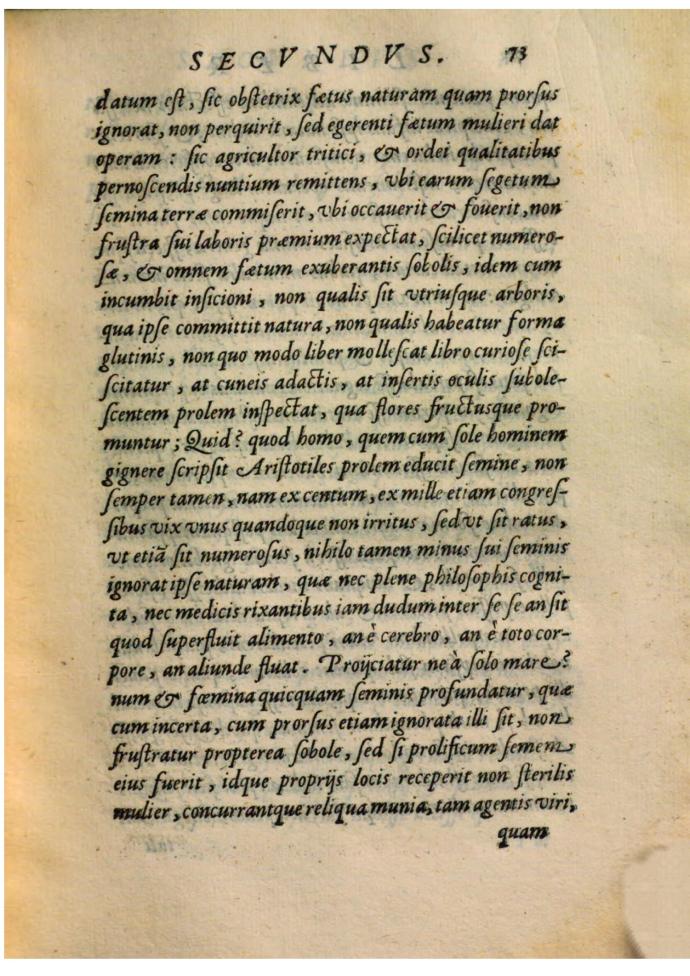 SECVNDVS. 73
datum est, sic obstetrix fætus naturam quam prorsus
ignorat, non perquirit, sed egerenti fætum mulieri dat
operam : sic agricultor tritici, & ordei qualitatibus
pernoscendis nuntium remittens, vbi earum segetum
semina terræ commiserit, vbi occauerit & fouerit, non
frustra sui laboris præmium expectat, scilicet numero-
sæ, & omnem fætum exuberantis sobolis, idem cum
incumbit insicioni, non qualis sit vtriusque arboris,
qua ipse committit natura, non qualis habeatur forma
glutinis, non quo modo liber mollescat libro curiose sci-
scitatur, at cuneis adactis, at insertis oculis subole-
scentem prolem inspectat, qua flores fructusque pro-
muntur; Quid? quod homo, quem cum sole hominem
gignere scripsit Aristotiles prolem educit semine, non
semper tamen, nam ex centum, ex mille etiam congres-
sibus vix vnus quandoque non irritus, sed vt sit ratus,
vt etiã sit numerosus, nihilo tamen minus sui seminis
ignorat ipse naturam, quæ nec plene philosophis cogni-
ta, nec medicis rixantibus iam dudum inter se se an sit
quod superfluit alimento, an è cerebro, an è toto cor-
pore, an aliunde fluat. Proijciatur ne à solo mare?
num & fœmina quicquam seminis profundatur, quæ
cum incerta, cum prorsus etiam ignorata illi sit, non
frustratur propterea sobole, sed si prolificum semem
eius fuerit, idque proprijs locis receperit non sterilis
mulier, concurrantque reliqua munia, tam agentis viri,
quam